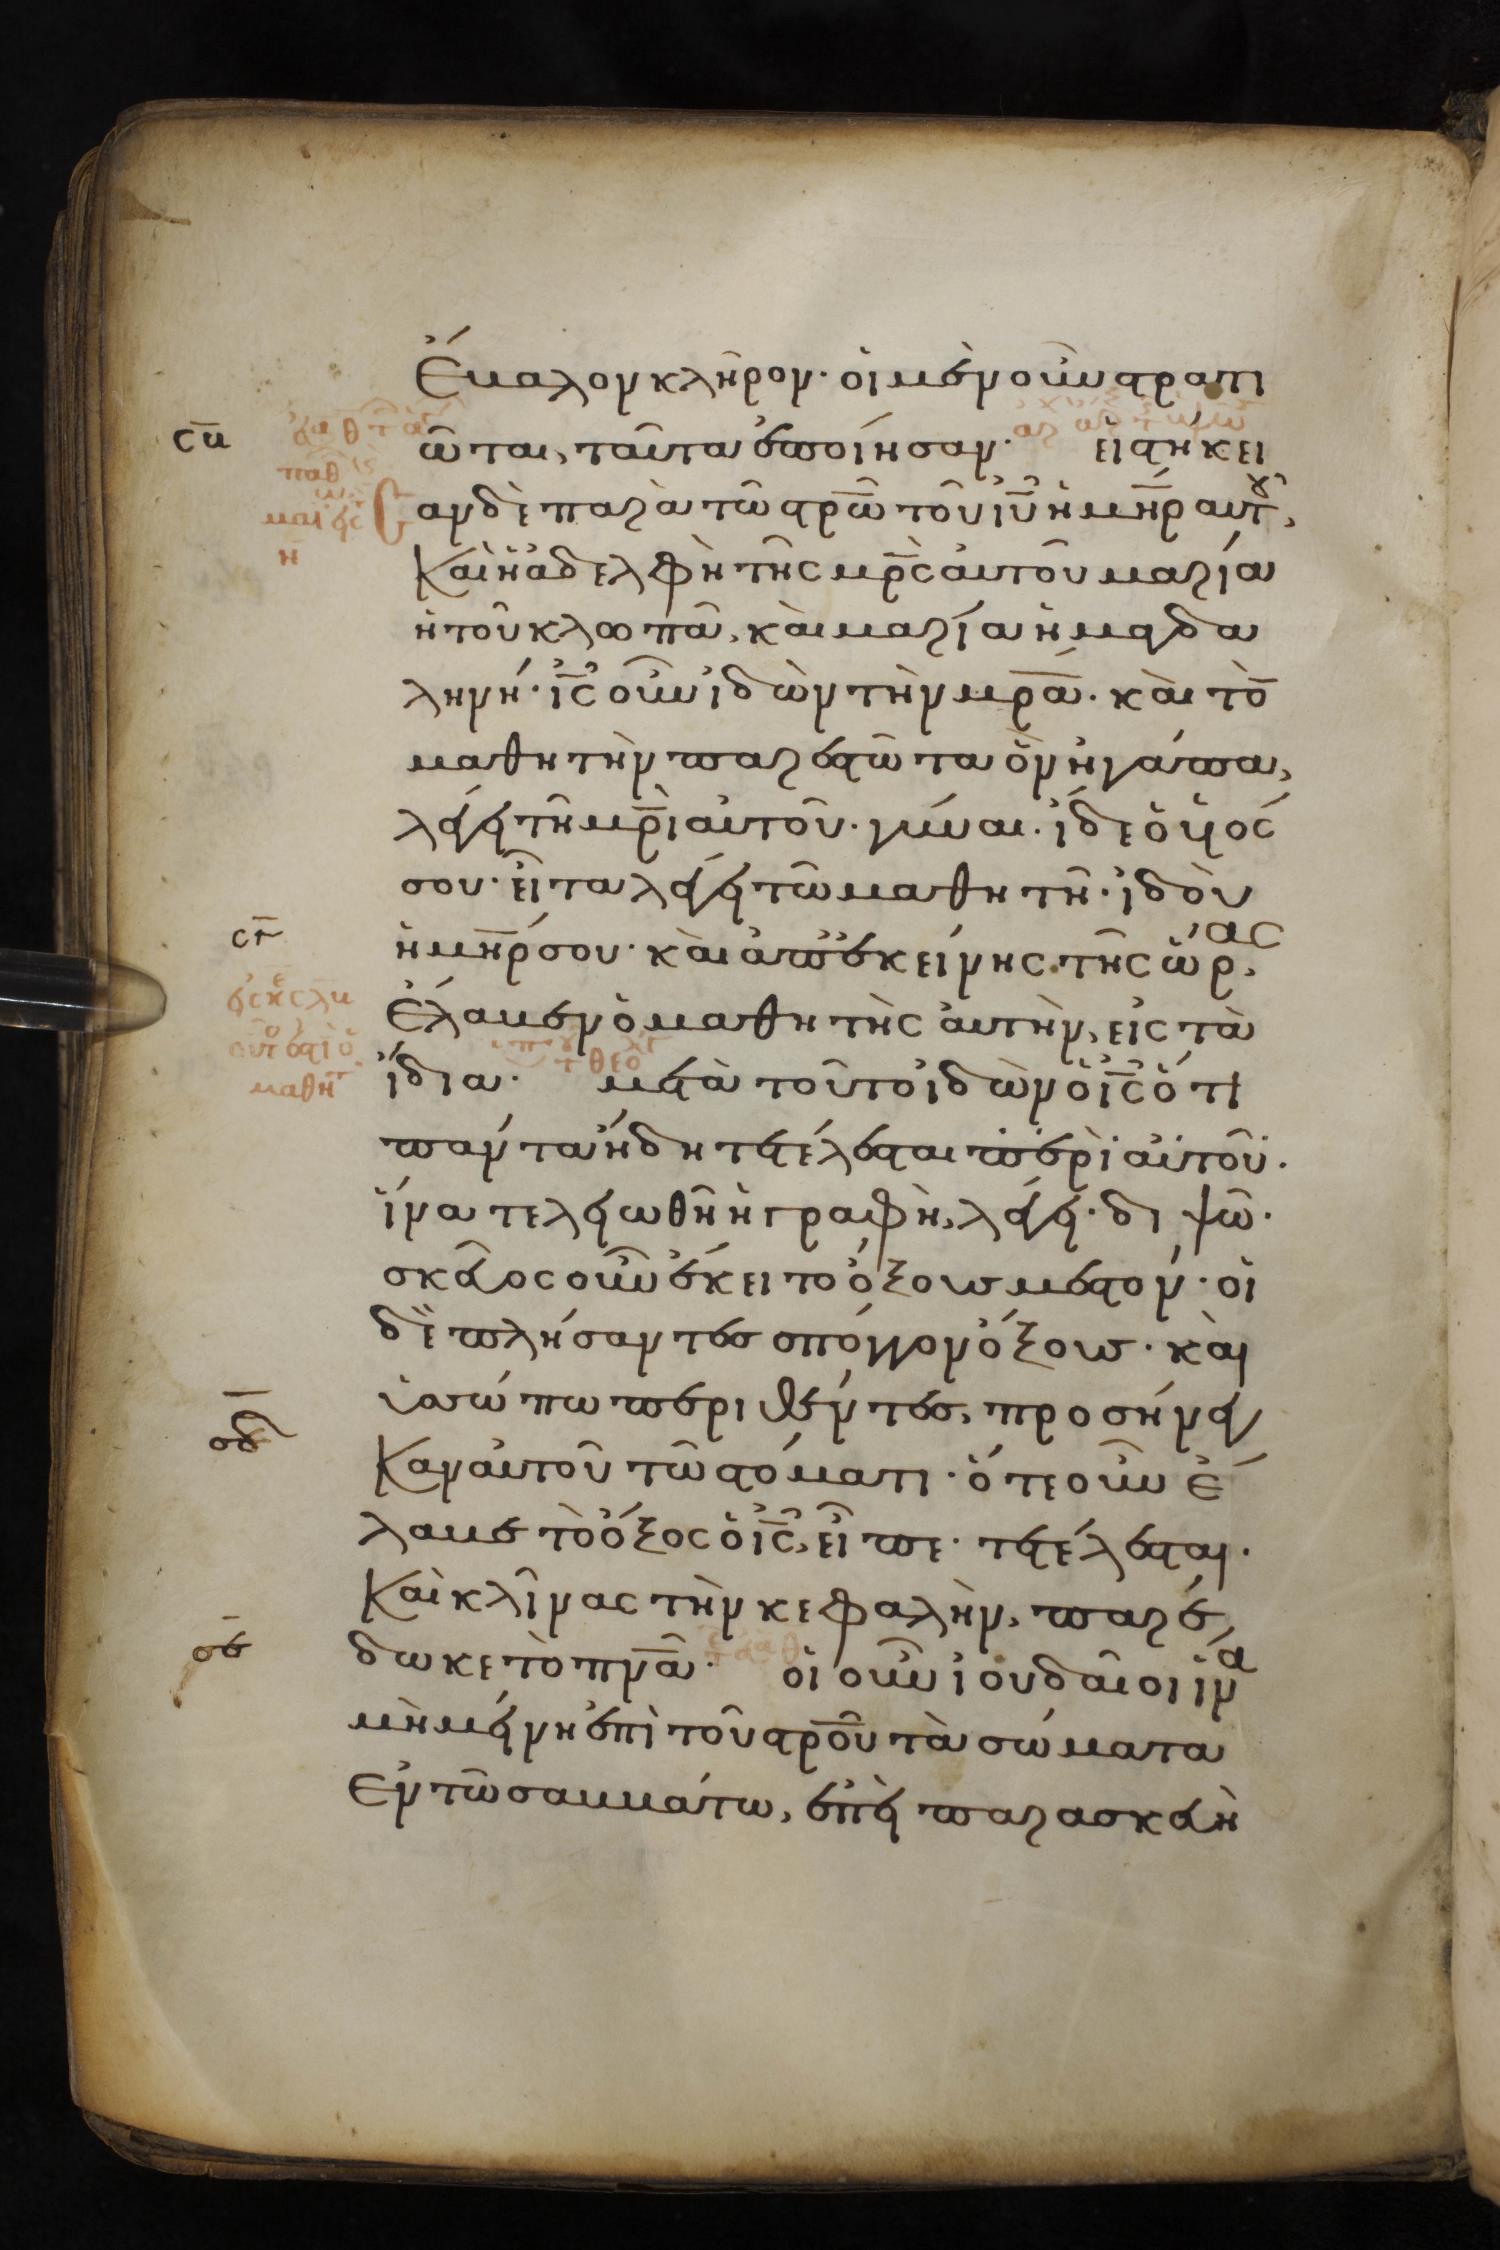 ἔβαλον κλῆρον· οἱ μὲν οὖν στρατι
ῶται, ταῦτα ἐποίησαν· εἱστήκει
σαν δὲ παρὰ τῶ στρῶ τοῦ ἰῦ ἡ μηρ αὐτοῦ,
Καὶ ἡ ἀδελφὴ τῆς μρὸς αὐτοῦ μαρία
ἡ τοῦ κλωπᾶ, καὶ μαρία ἡ μαγδα
ληνή· ἰς οὖν ἰδὼν τὴν μρα· καὶ τὸν
μαθητὴν παρεστῶτα ὃν ἠγάπα,
λέγει τῆ μρὶ αὐτοῦ· γύναι· ἴδε ὁ υἱός
σου· εἶτα λέγει τῶ μαθητῆ· ἰδοὺ
ἡ μηρ σου· καὶ ἀπ' ἐκείνης τῆς ὥρας,
Ἔλαβεν ὁ μαθητὴς αὐτὴν, εἰς τὰ
ἴδια· μετὰ τοῦτο ἰδὼν ὁ ἰς ὅτι
πάντα ἤδη τετέλεσται περὶ αὐτοῦ·
ἵνα τελειωθῆ ἡ γραφὴ, λέγει· διψῶ·
σκεῦος οὖν ἔκειτο ὄξους μεστόν· οἱ
δὲ πλήσαντες σπόγγον ὄξους· καὶ
ὑσσώπω περιθέντες, προσήνεγ
Καν αὐτοῦ τῶ στόματι· ὅτε οὖν ἔ
λαβε τὸ ὄξος ὁ ἰς, εἶπε· τετέλεσται·
Καὶ κλίνας τὴν κεφαλὴν, παρέ
δωκε τὸ πνα· οἱ οὖν ἰουδαῖοι ἵνα
μὴ μείνη ἐπὶ τοῦ στροῦ τὰ σώματα
Ἐν τῶ σαββάτω, ἐπεὶ παρασκευὴ